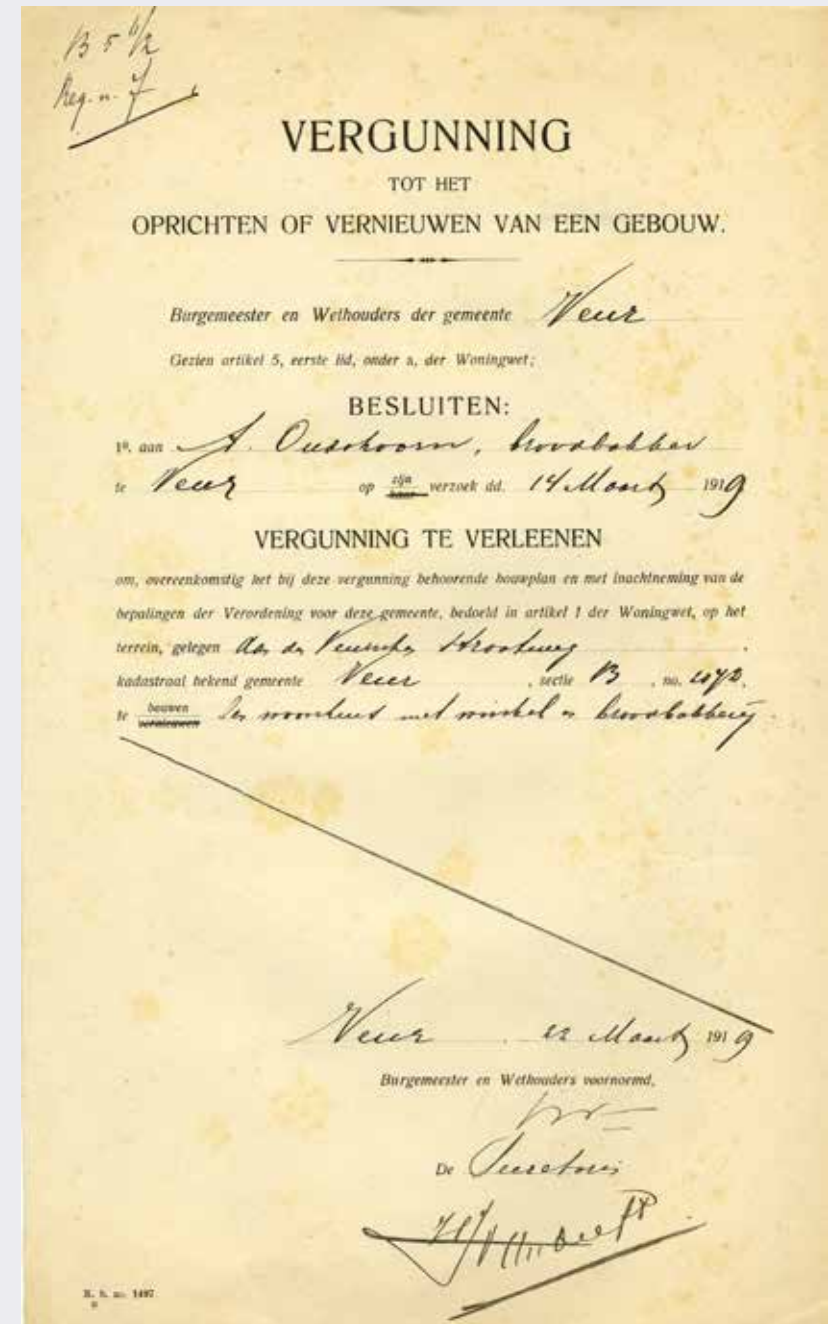 B 5 6/2
Reg. n. 7
VERGUNNING
TOT HET
OPRICHTEN OF VERNIEUWEN VAN EEN GEBOUW.
Burgemeester en Wethouders der gemeente Veur
Gezien artikel 5, eerste lid, onder a, der Woningwet;
BESLUITEN:
1º. aan A. Oudshoorn, broodbakker
te Veur op zijn haar verzoek dd. 14 Maart 1919
VERGUNNING TE VERLEENEN
om, overeenkomstig het bij deze vergunning behoorende bouwplan en met inachtneming van de
bepalingen der Verordening voor deze gemeente, bedoeld in artikel 1 der Woningwet, op het
terrein, gelegen aan de Veursche Straatweg
kadastraal bekend gemeente Veur, sectie B, no.
te bouwen vernieuwen een woonhuis met winkel en broodbakkerij.
Veur, 22 Maart 1919
Burgemeester en Wethouders voornoemd,
De Secretaris
K. b. no. 1497